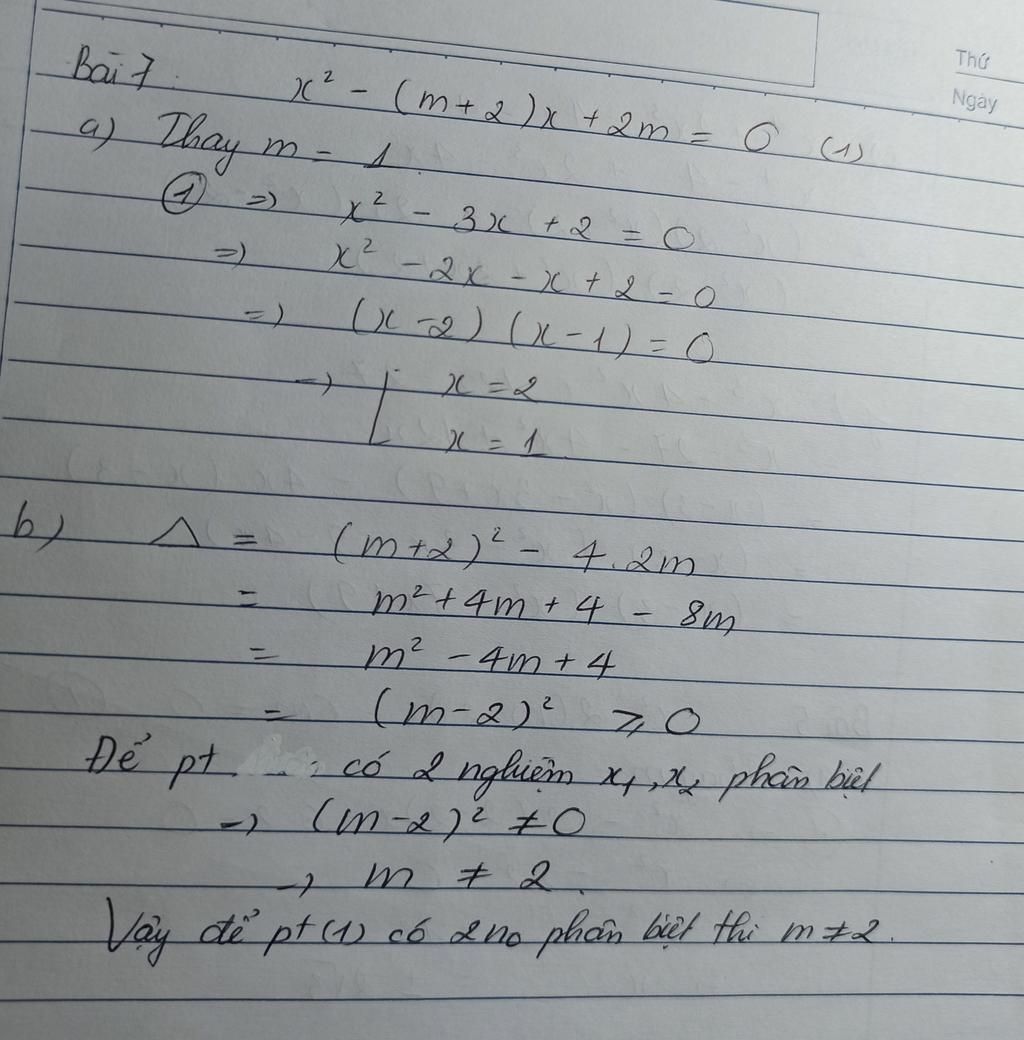 Thứ
Ngày
Bài 7. x² - (m+2)x + 2m = 0 (1)
a) Thay m = 1.
① => x² - 3x + 2 = 0
=> x² - 2x - x + 2 = 0
=> (x-2) (x-1) = 0
-> [ x = 2
x = 1.
b) Δ = (m+2)² - 4.2m
= m² + 4m + 4 - 8m
= m² - 4m + 4
= (m-2)² ⩾ 0
Để pt có 2 nghiệm x₁, x₂ phân biệt
-> (m-2)² ≠ 0
-> m ≠ 2.
Vậy để pt (1) có 2 no phân biệt thì m ≠ 2.